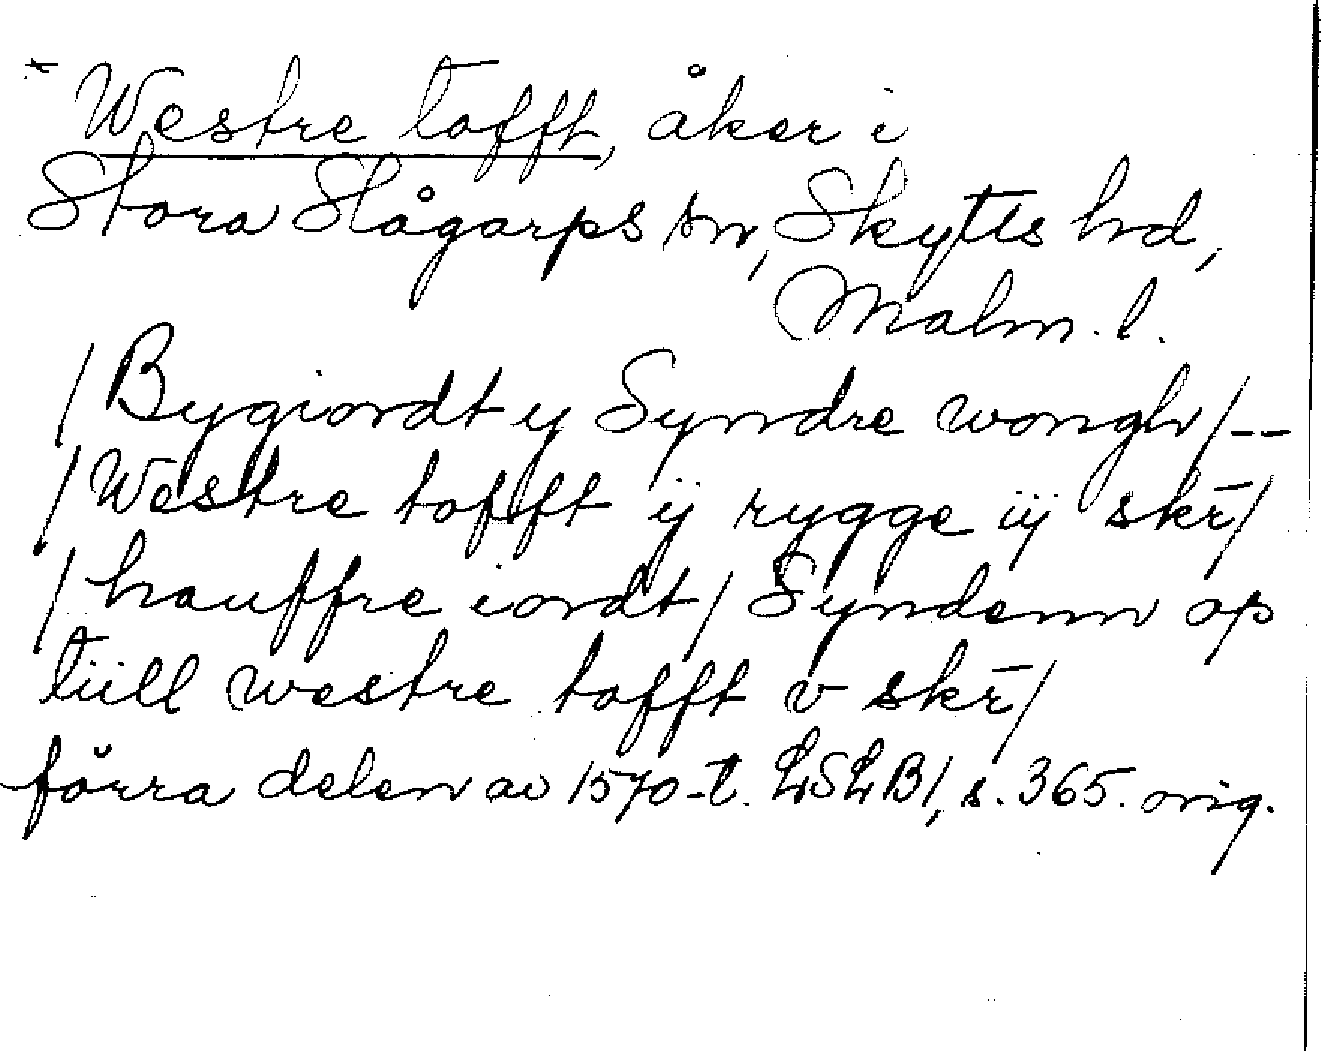 * Westre tofft, åker i
Stora Slågarps sn, Skytts hd,
Malm. l.
/Bygiordt y Syndre wongh/--
/Westre tofft ÿ rygge iÿ skr̄/
/hauffre iordt/ Syndenn op
tiill westre tofft v skr̄/
förra delen av 1570-t. LSLB1, s. 365. orig.